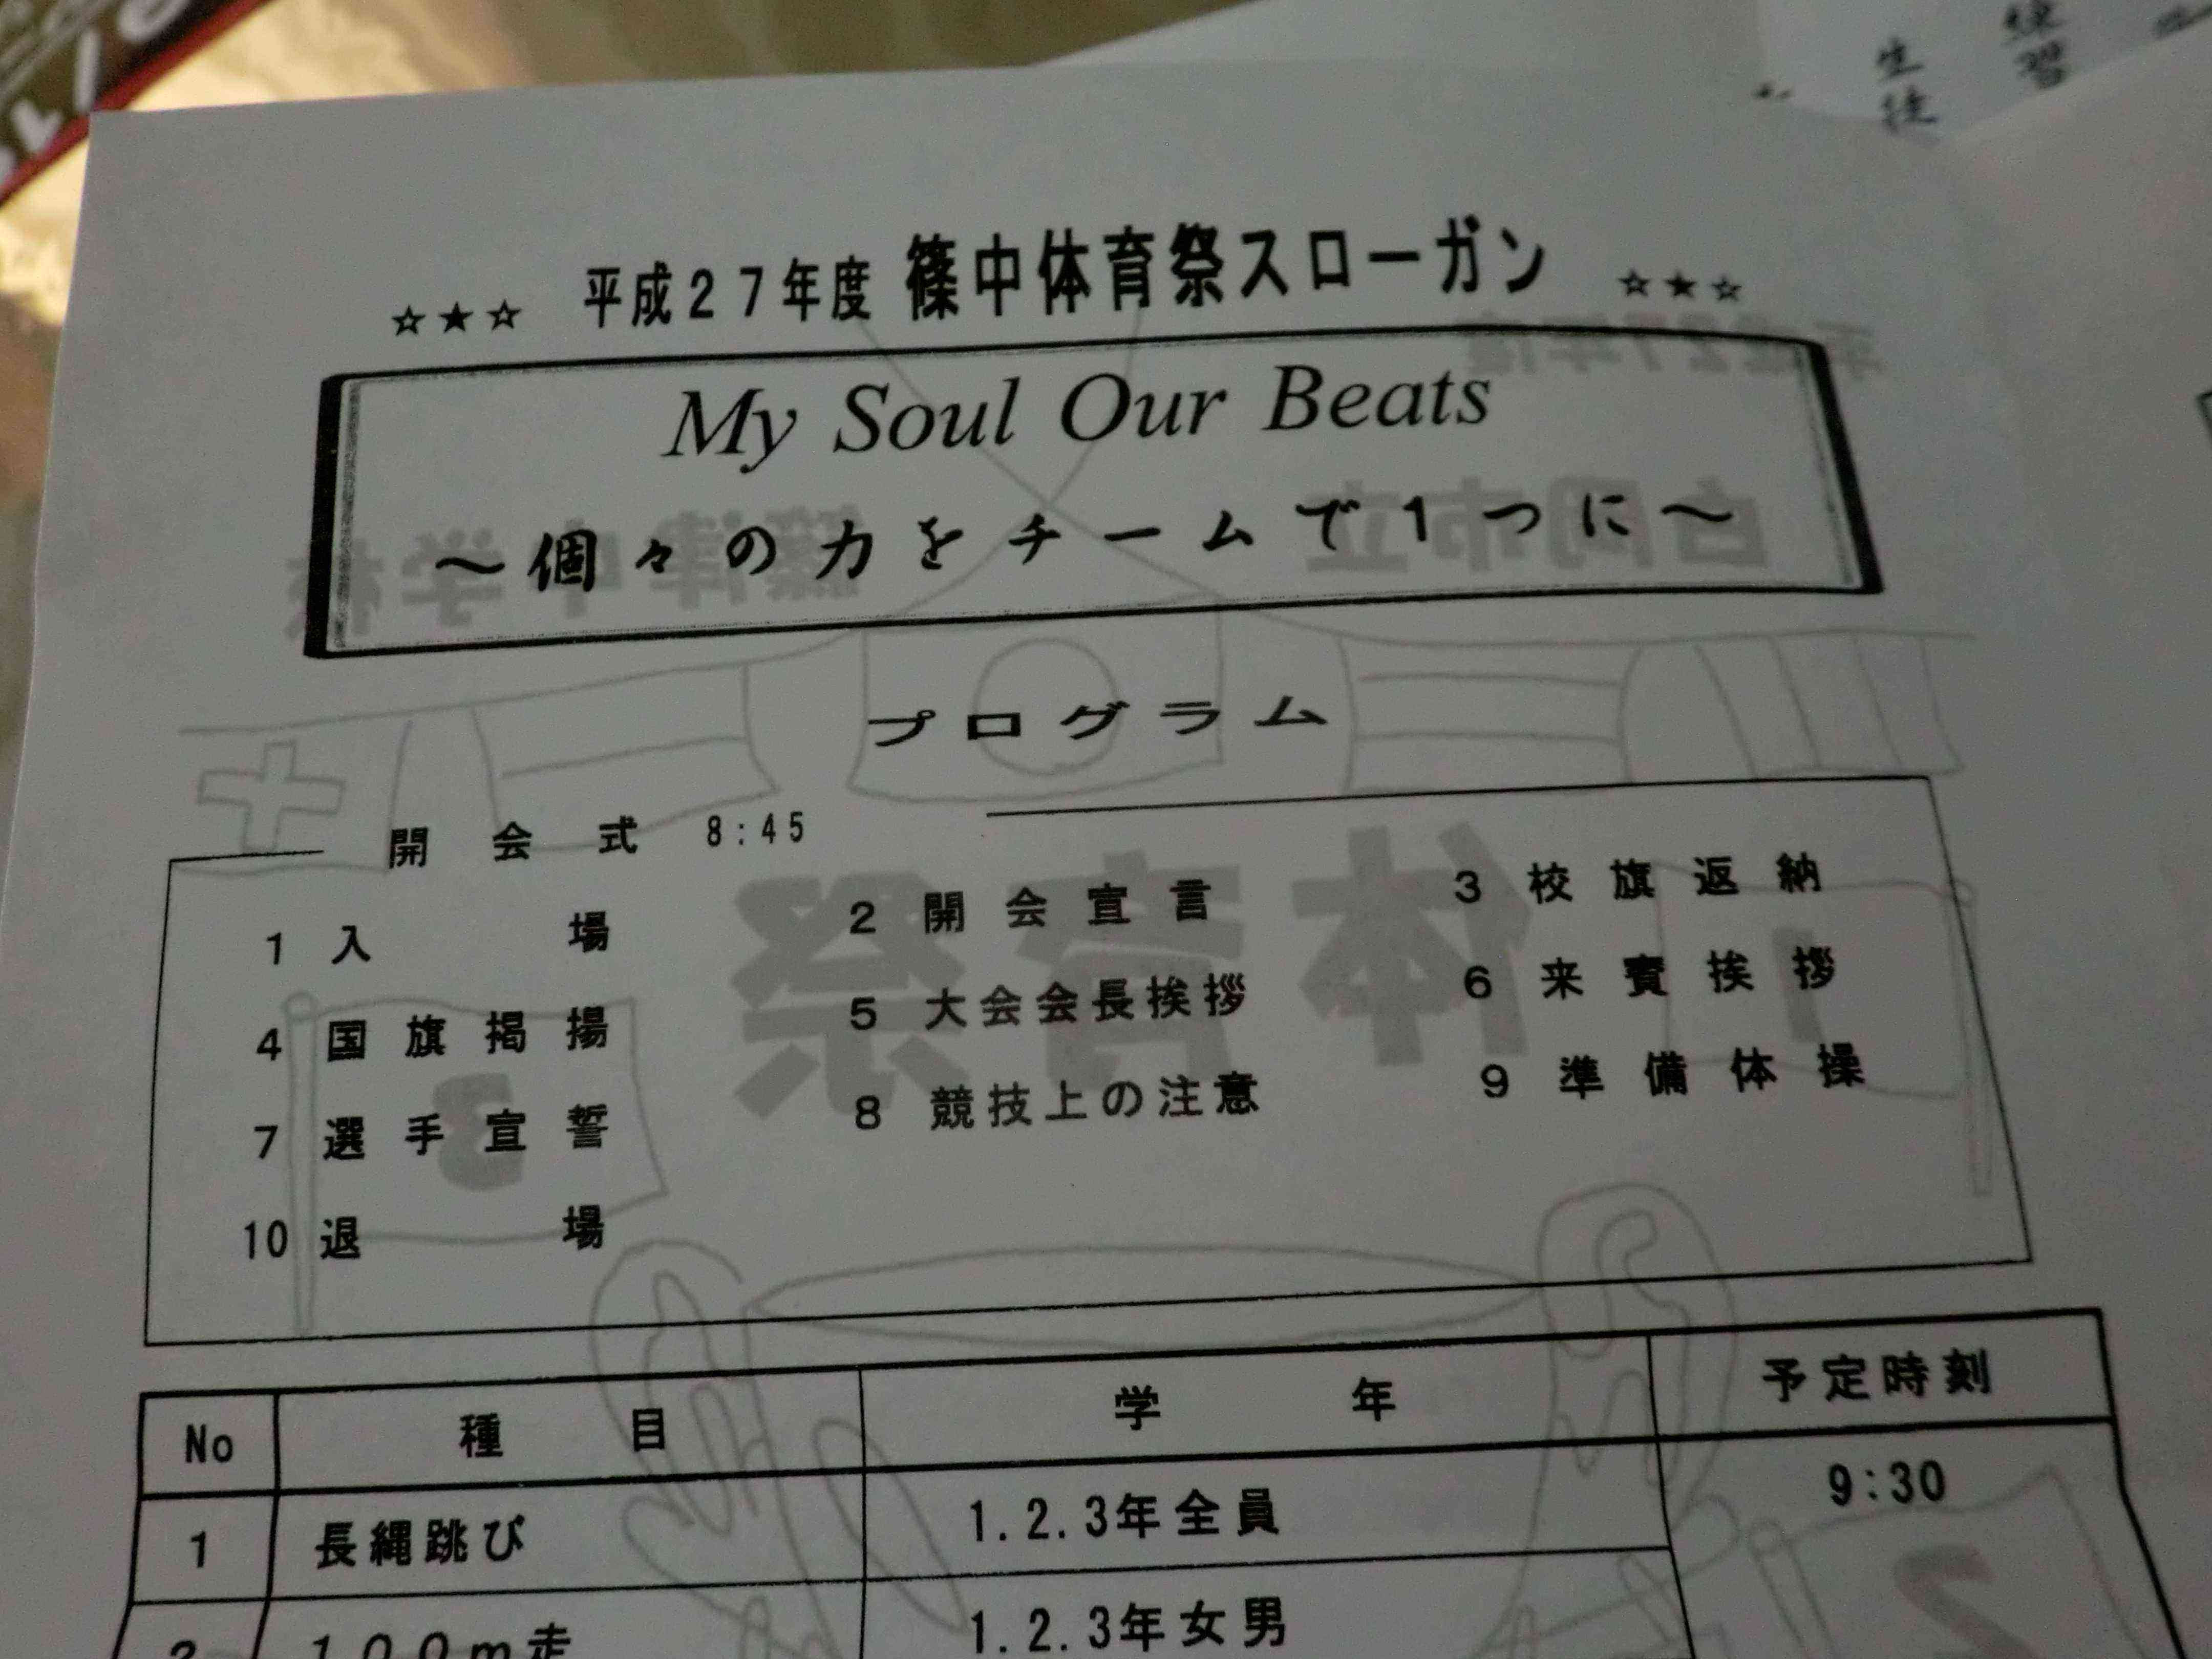 生徒
練習
☆★☆ 平成27年度 篠中体育祭スローガン ☆★☆
My Soul Our Beats
～個々の力をチームで1つに～
プログラム
開会式 8:45
1 入場 2 開会宣言 3 校旗返納
4 国旗掲揚 5 大会会長挨拶 6 来賓挨拶
7 選手宣誓 8 競技上の注意 9 準備体操
10 退場
No 種目 学年 予定時刻
1 長縄跳び 1.2.3年全員 9:30
2 100m走 1.2.3年女男
平成27年度
白岡市立 篠津中学校
体育祭
1
3
2